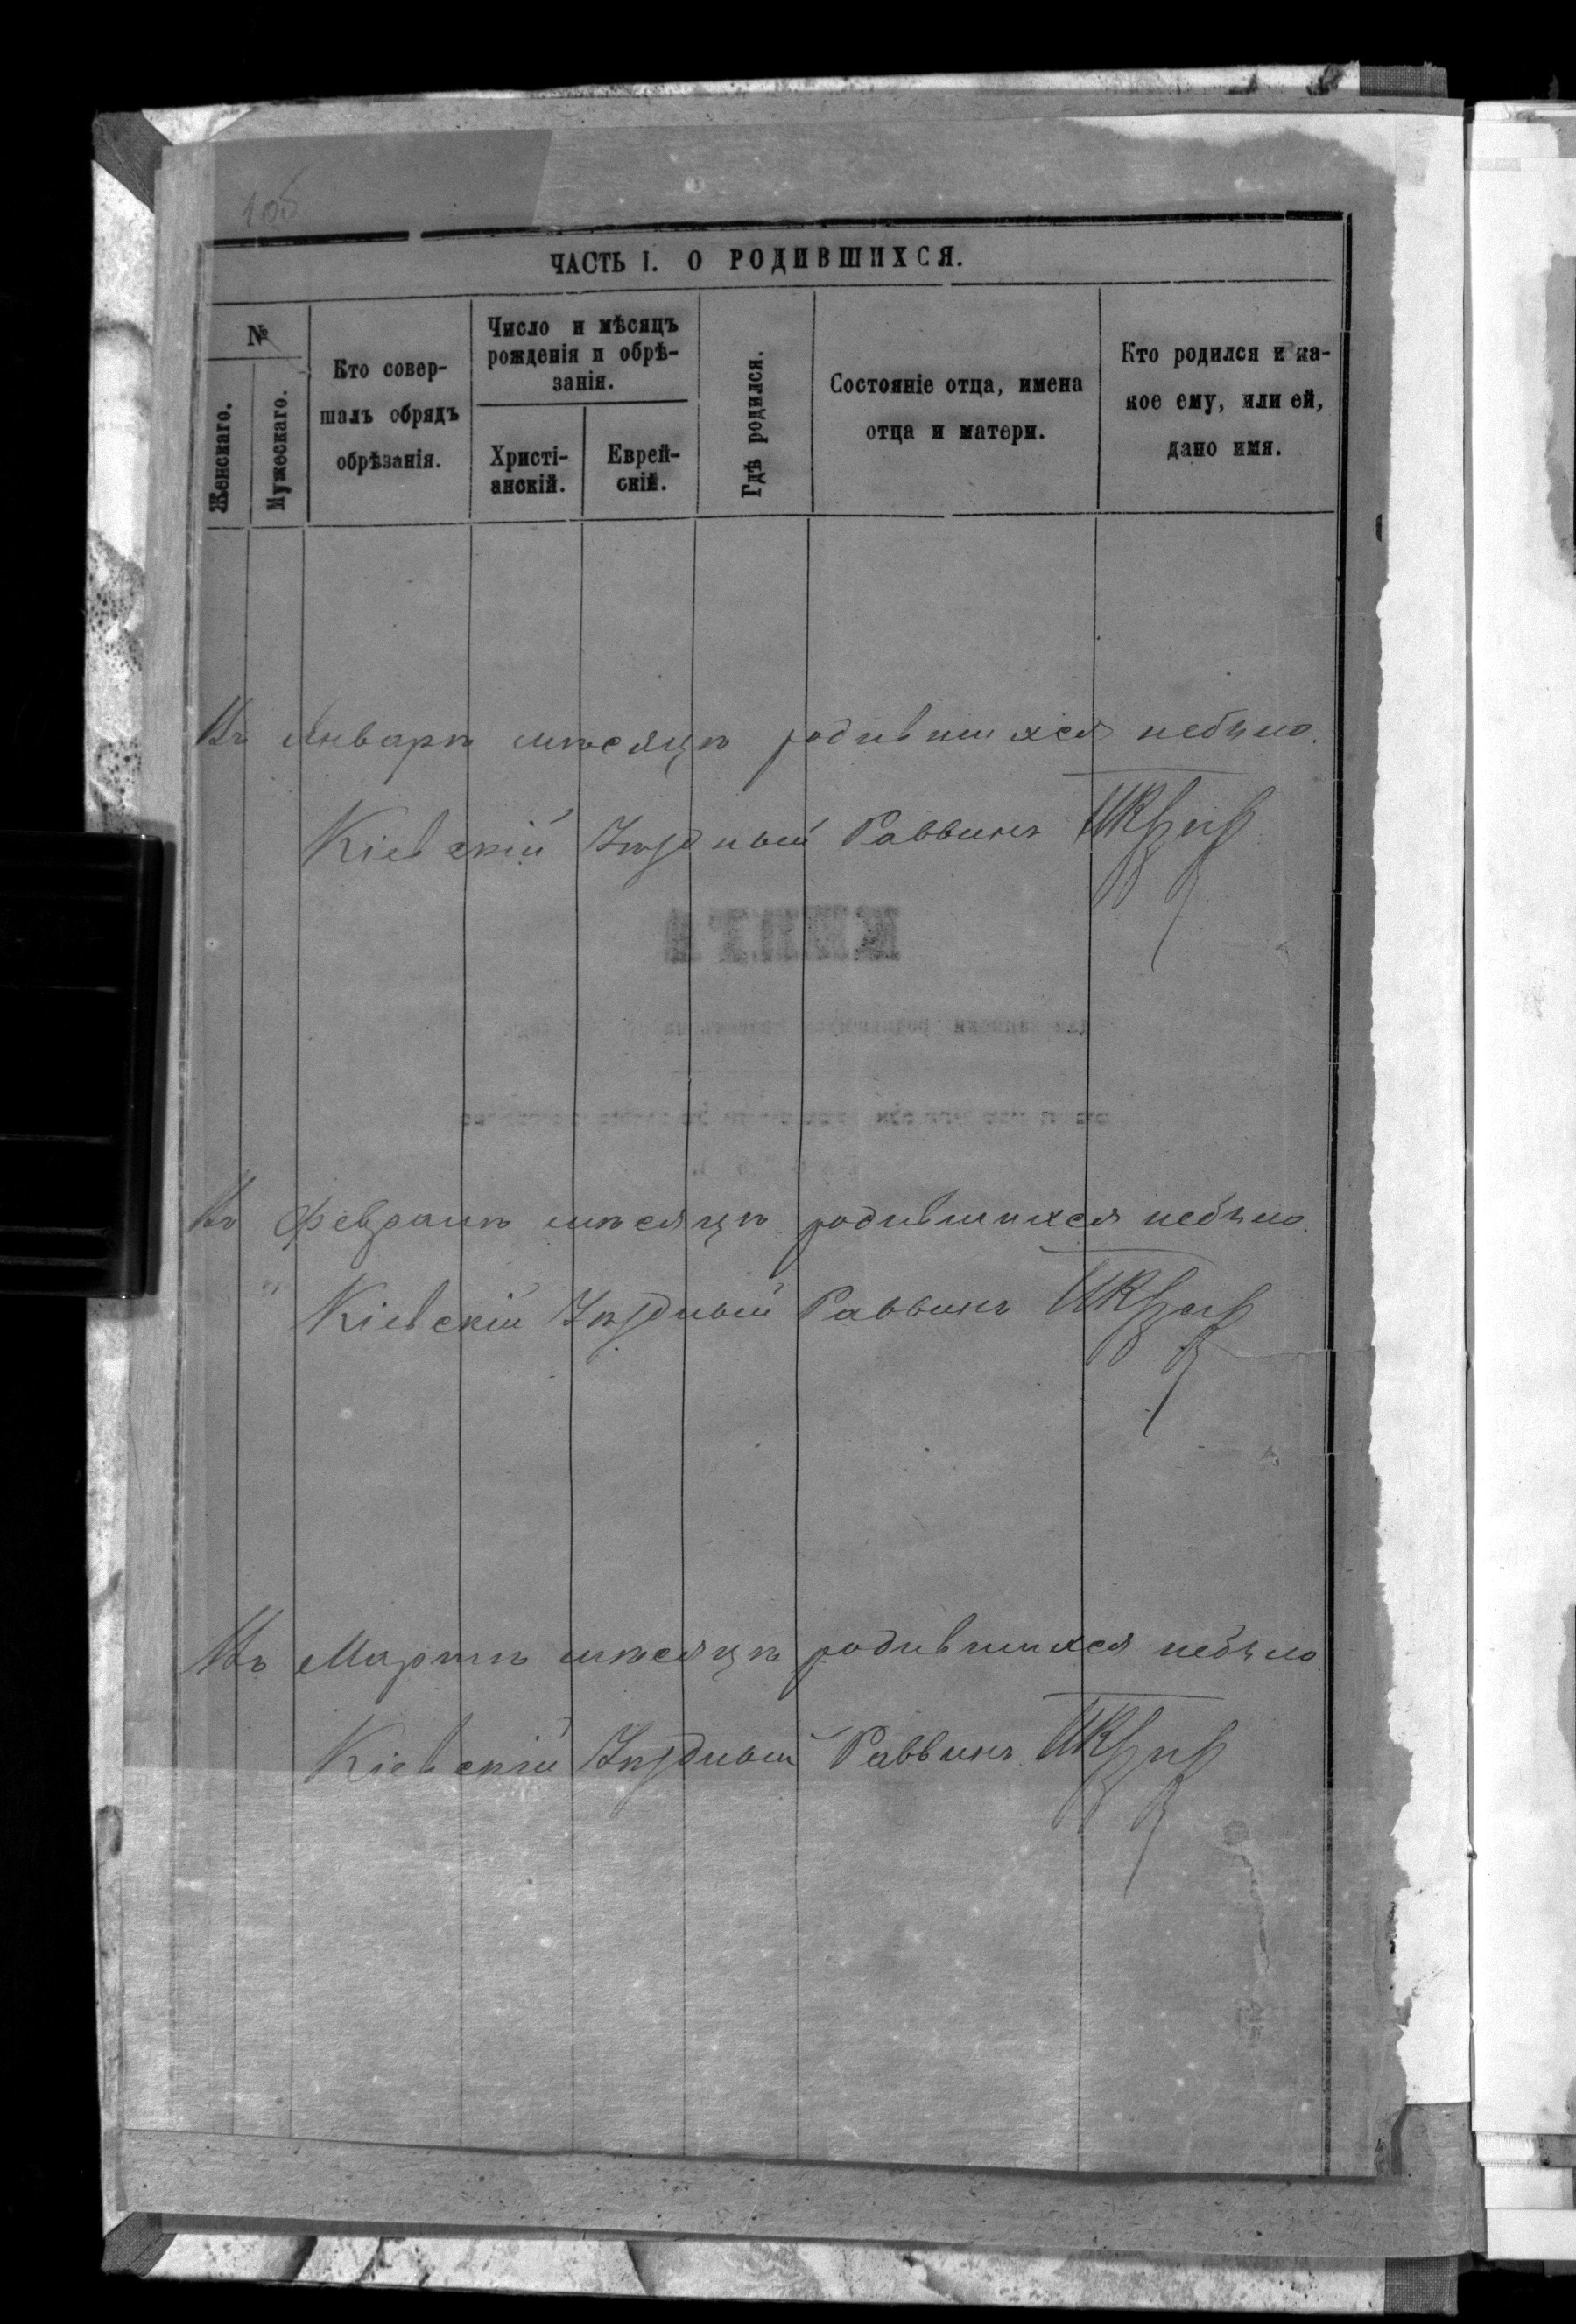 1об
ЧАСТЬ I. О РОДИВШИХСЯ.
№
Женскаго.
Мужескаго.
Кто совер-
шалъ обрядъ
обрѣзанія.
Число и мѣсяцъ
рожденія и обрѣ-
занія.
Христі-
анскій.
Еврей-
скій.
Гдѣ родился.
Состояніе отца, имена
отца и матери.
Кто родился и ка-
кое ему, или ей,
дано имя.
Въ Январѣ мѣсяцѣ родившихся небыло.
Кіевскій Уѣздный Раввинъ
КНИГА
Въ Февралѣ мѣсяцѣ родившихся небыло.
Кіевскій Уѣздный Раввинъ
Въ Мартѣ мѣсяцѣ родившихся небыло
Кіевскій Уѣздный Раввинъ